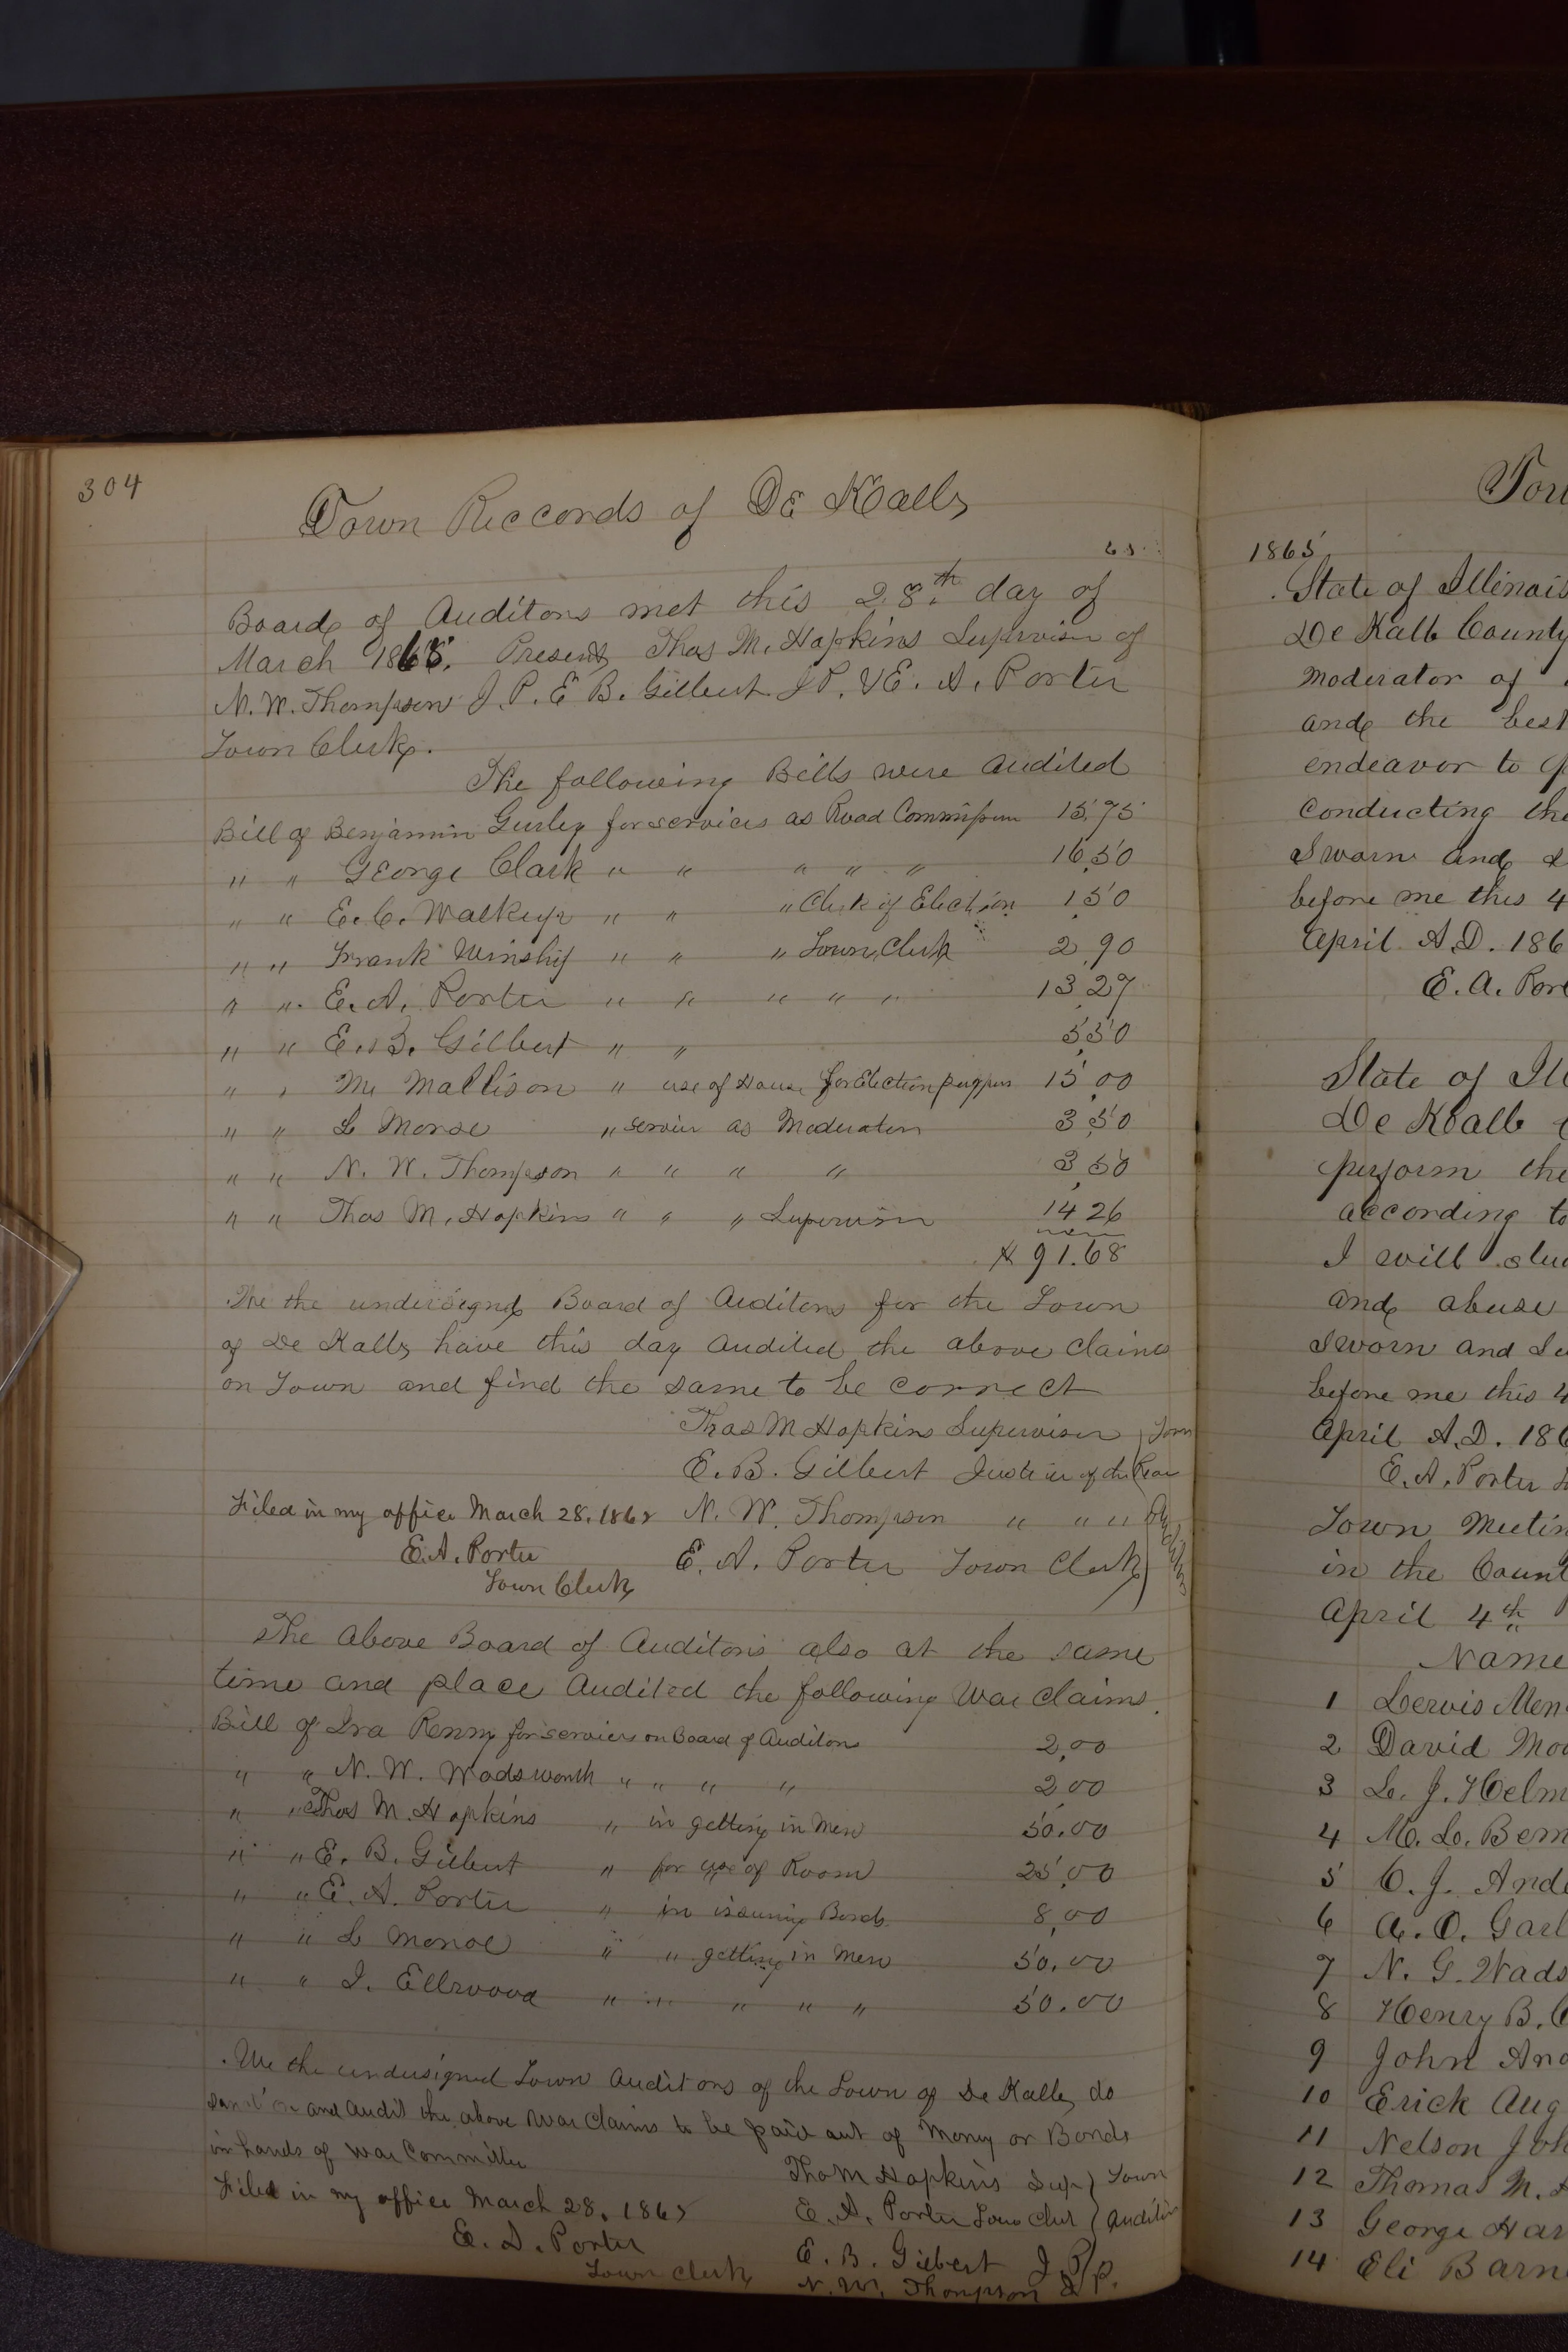 304
Town Reccords of De Kalb
65
Board of Auditors met this 28th day of
March 1865. Present Thos M. Hopkins Supervisor of
N. W. Thompson J. P. E B. Gilbert J P. & E. A. Porter
Town Clerk.
The following Bills were audited
Bill of Benjamin Gurley for services as Road Commissioner 15,75
" " George Clark " " " " " 16,50
" " E. C. Walkup " " " Clerk of Election 1,50
" " Frank Winship " " " Town Clerk 2,90
" " E. A. Porter " " " " " 13,27
" " E. B. Gilbert " " 5,50
" " M. Mallison " use of House for Election purposes 15,00
" " L Morse " service as Moderator 3,50
" " N. W. Thompson " " " " 3,50
" " Thos M. Hopkins " " " Supervisor 14 26
$ 91.68
We the undersigned Board of Auditors for the Town
of De Kalb have this day audited the above claims
on Town and find the same to be correct
Thos M Hopkins Supervisor Town
E. B. Gilbert Justice of the Peace
Filed in my office March 28. 1865 N. W. Thompson " " " Auditors
E. A. Porter E. A. Porter Town Clerk
Town Clerk
The above Board of Auditors also at the same
time and place audited the following War claims.
Bill of Ira Renny for services on Board of Auditors 2,00
" " N. W. Wadsworth " " " " 2 00
" " Thos M. Hopkins " in getting in Men 50.00
" " E. B. Gilbert " for use of Room 25,00
" " E. A. Porter " in issuing Bonds 8,00
" " L Morse " " getting in Men 50.00
" " I. Ellwood " " " " " 50.00
We the undersigned Town Auditors of the Town of De Kalb do
and audit the above War claims to be paid out of Money or Bonds
in hands of War Committee
Thos M Hopkins Sup Town
Filed in my office March 28. 1865 E. A. Porter Town Clerk Auditors
E. A. Porter E. B. Gilbert J. P.
Town Clerk N. W. Thompson J. P.
Tow
1865
State of Illinois
De Kalb County
Moderator of
and the best
endeavor to
conducting the
Sworn and
before me this 4
April A.D. 186
E. A. Por
State of Il
De Kalb
perform the
according to
I will
and abuse
Sworn and Su
before me this 4
April A.D. 186
E. A. Porter
Town Meetin
in the Count
April 4th
Name
1 Lervis Men
2 David Mo
3 L. J. Helm
4 M. L. Bem
5 C. J. Ande
6 A. O. Garl
7 N. G. Wads
8 Henry B. C
9 John And
10 Erick Aug
11 Nelson Joh
12 Thomas M.
13 George Har
14 Eli Barn